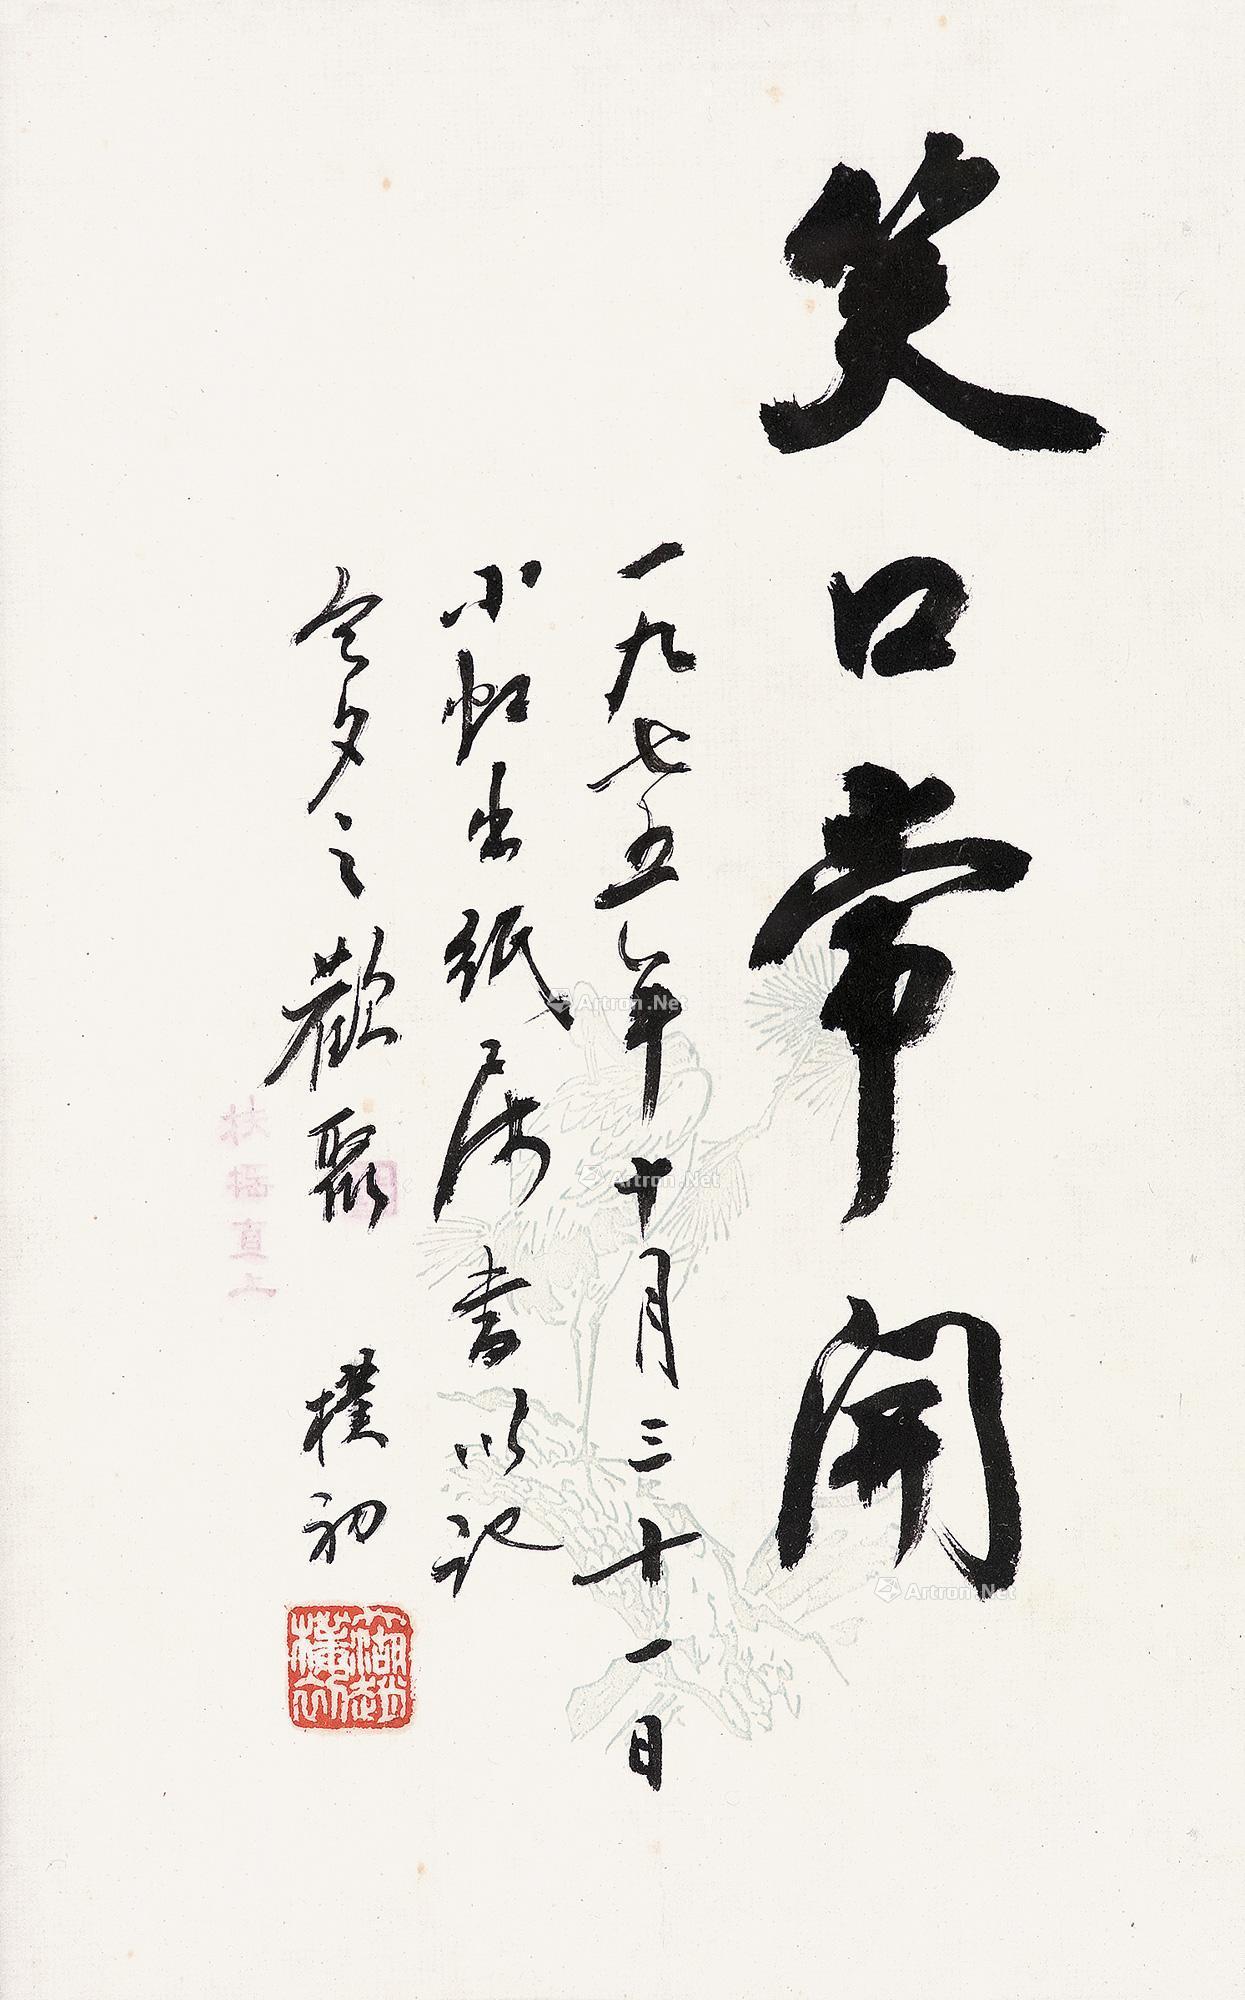 笑口常開
一九七五年十月三十一日
小虹出紙屬書以記
今夕之歡聚 樸初
Artron.Net
Artron.Net
Artron.Net
直上